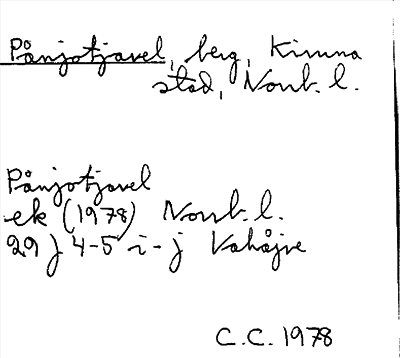 Pånjotjavel, berg, Kiruna
stad, Norrb. l.
Pånjotjavel
ek (1978) Norrb. l.
29 J 4-5 i-j Kahåjve
C.C. 1978